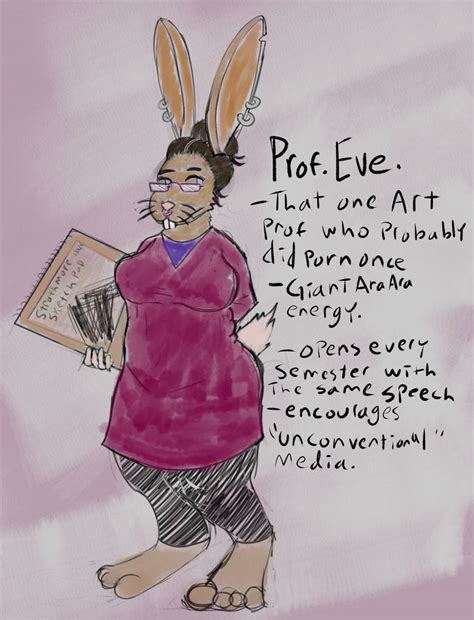 Prof. Eve.
-That one Art
Prof who Probably
did Porn once
-Giant Ara Ara
energy.
-opens every
semester with
the same speech
-encourages
"unconventional"
Media.
Sketch Pad